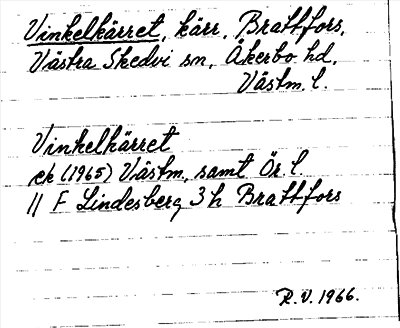 Vinkelkärret, kärr, Brattfors,
Västra Skedvi sn, Åkerbo hd,
Västm. l.
Vinkelkärret
ek (1965) Västm. samt Ör. l.
11 F Lindesberg 3 h Brattfors
R. V. 1966.